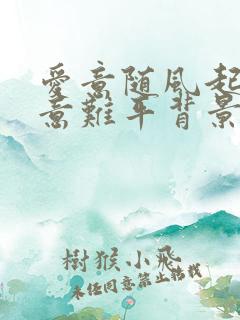 愛意随風起
意難平背景
樹猴小飛
未经同意禁止转载